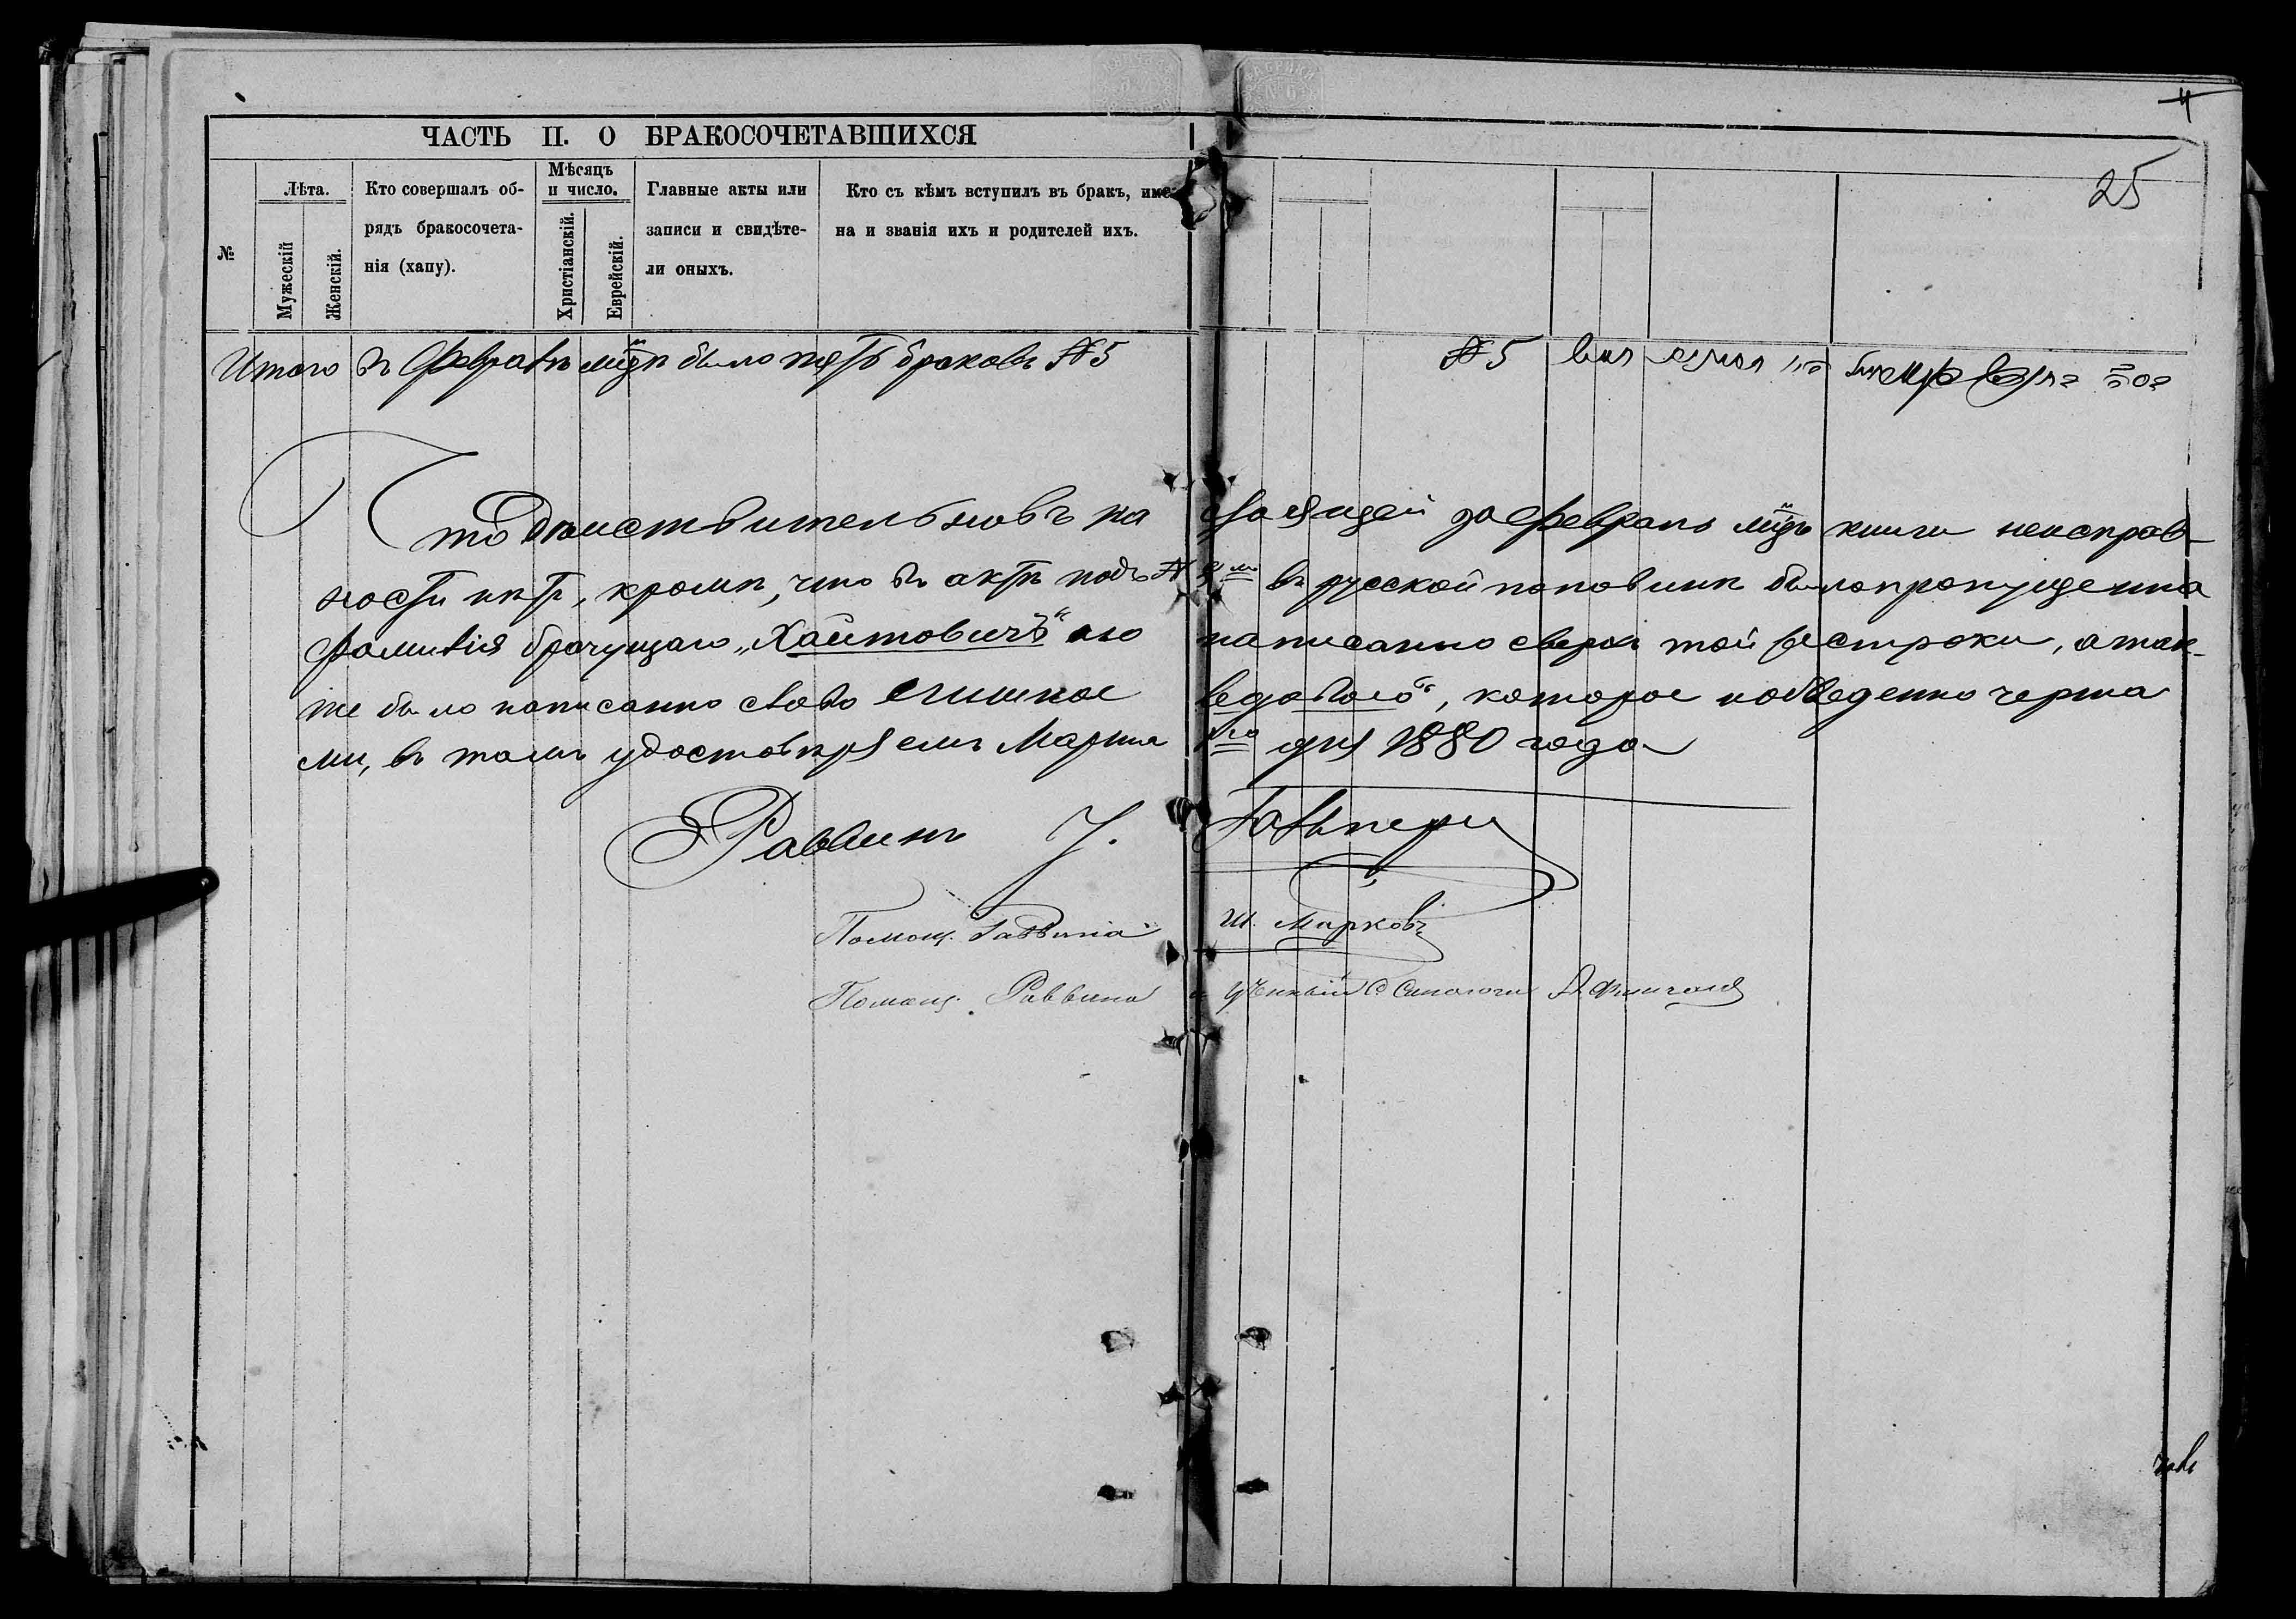 4
25
ЧАСТЬ II. О БРАКОСОЧЕТАВШИХСЯ
№
Лѣта.
Мужескій
Женскій.
Кто совершалъ об-
рядъ бракосочета-
нія (хапу).
Мѣсяцъ
и число.
Христіанскій.
Еврейскій.
Главные акты или
записи и свидѣте-
ли оныхъ.
Кто съ кѣмъ вступилъ въ бракъ, име-
на и званія ихъ и родителей ихъ.
Итого въ Февралѣ мцѣ было пять браковъ № 5 № 5
Что дѣиствительновъ настоящей за Февраль мцъ книги неисправ-
ности нѣтъ, кромѣ, что въ актѣ подъ № въ русской половинѣ было пропущенна
фамилія брачущаго „Хаитовичъ“ но написанно сверхъ той строки, а так-
же было написанно слово которое подведенно черта
ми, въ томъ удостовѣряемъ Марта 1го дня 1880 года
Раввинъ
Помощ. Раввина Ш. Марковъ
Помощ. Раввина и ученный